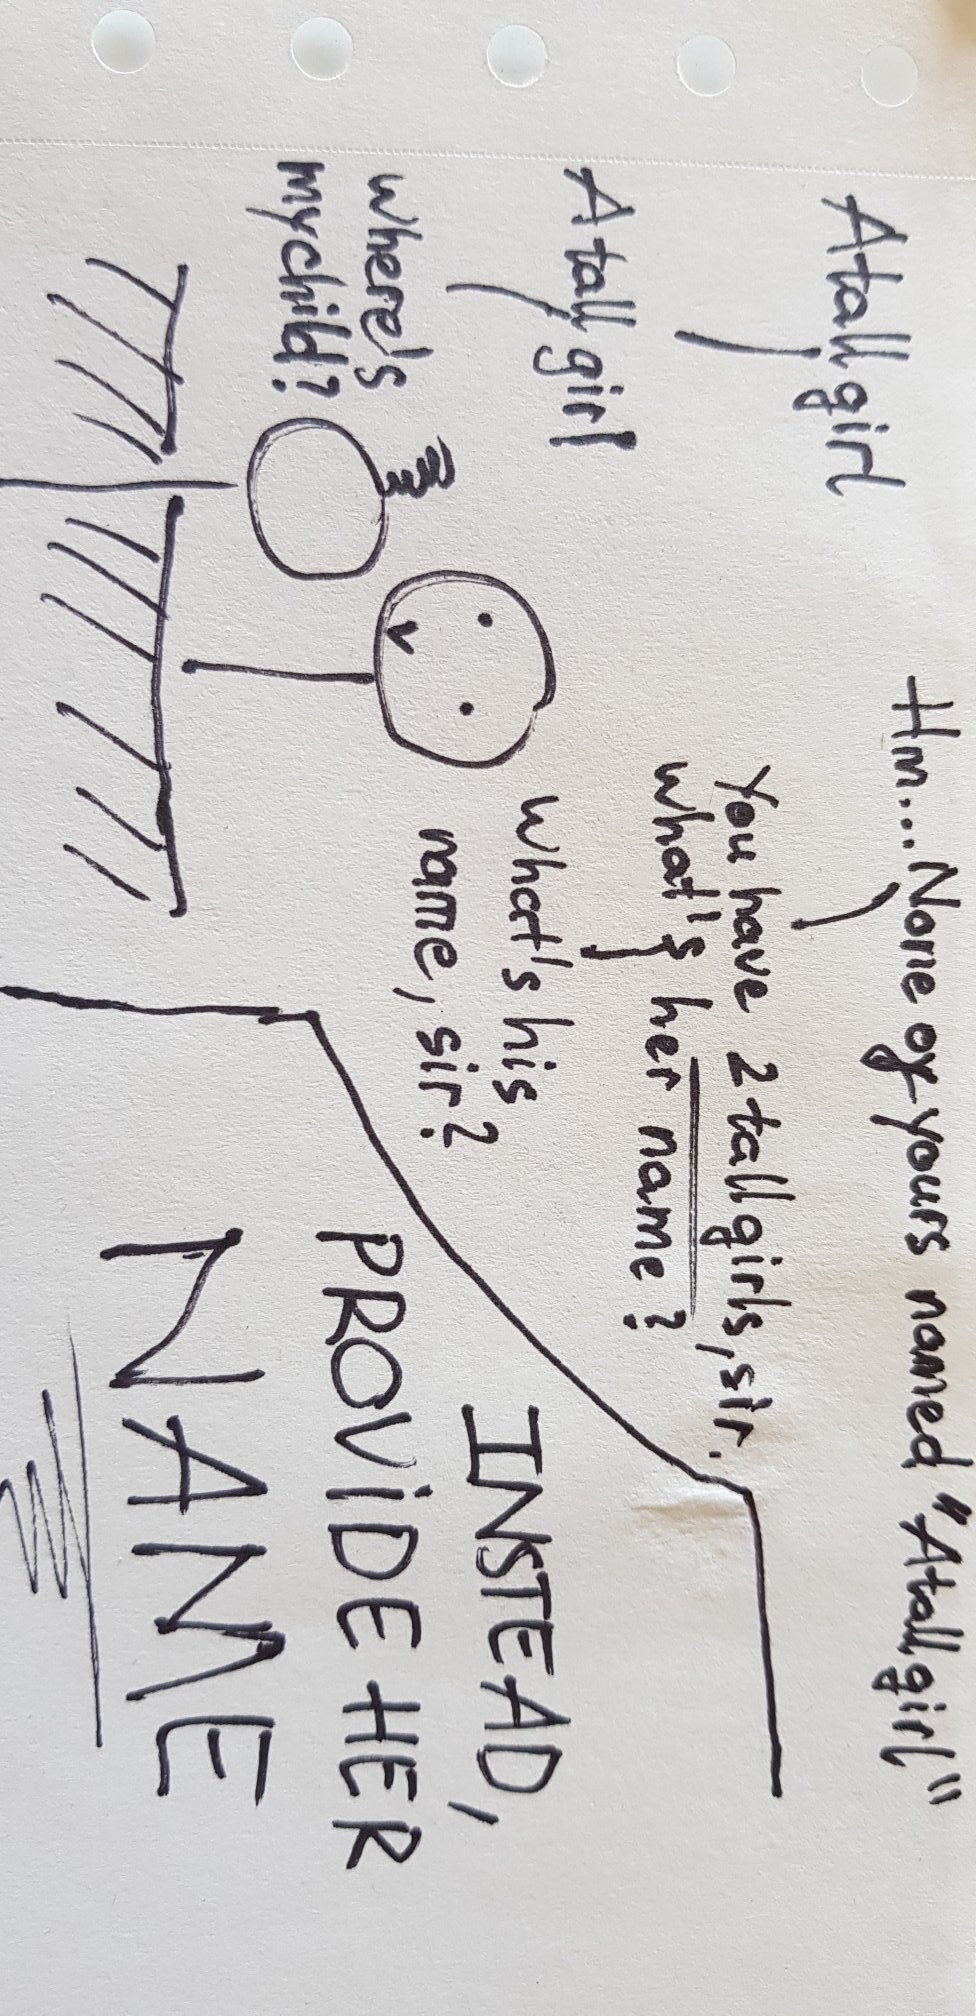 A tall girl
Hm... None of yours named "A tall girl"
You have 2 tall girls, sir.
What's her name?
A tall girl
What's his
name, sir?
where's
my child?
INSTEAD,
PROViDE HER
NAME